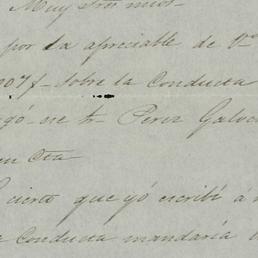 Muy Sres mios
por la apreciable de V
sobre la Conducta
Perez Galvez
en Cta
Cierto que yó escribí á
Conducta mandaría